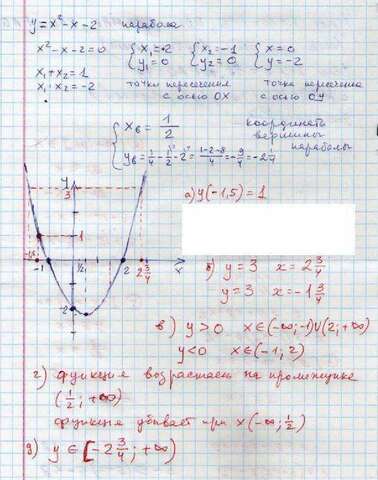 y = x² - x - 2 парабола
x² - x - 2 = 0 { x₁ = 2 { x₂ = -1 { x = 0
y₁ = 0 y₂ = 0 y = -2
x₁ + x₂ = 1
x₁ · x₂ = -2
точки пересечения с осью OX
точка пересечен. с осью OY
{ xв = 1/2
yв = 1/4 - 1/2 - 2 = (1-2-8)/4 = -9/4 = -2 1/4
координаты вершины параболы
y
3
1
-1,5
-1
1/2
2
2 3/4
x
-2
а) y(-1,5) = 1
б) y = 3 x = 2 3/4
y = 3 x = -1 3/4
в) y > 0 x ∈ (-∞; -1) ∪ (2; +∞)
y < 0 x ∈ (-1; 2)
г) функция возрастает на промежутке
(1/2; +∞)
функция убывает при x (-∞; 1/2)
д) y ∈ [-2 3/4; +∞)